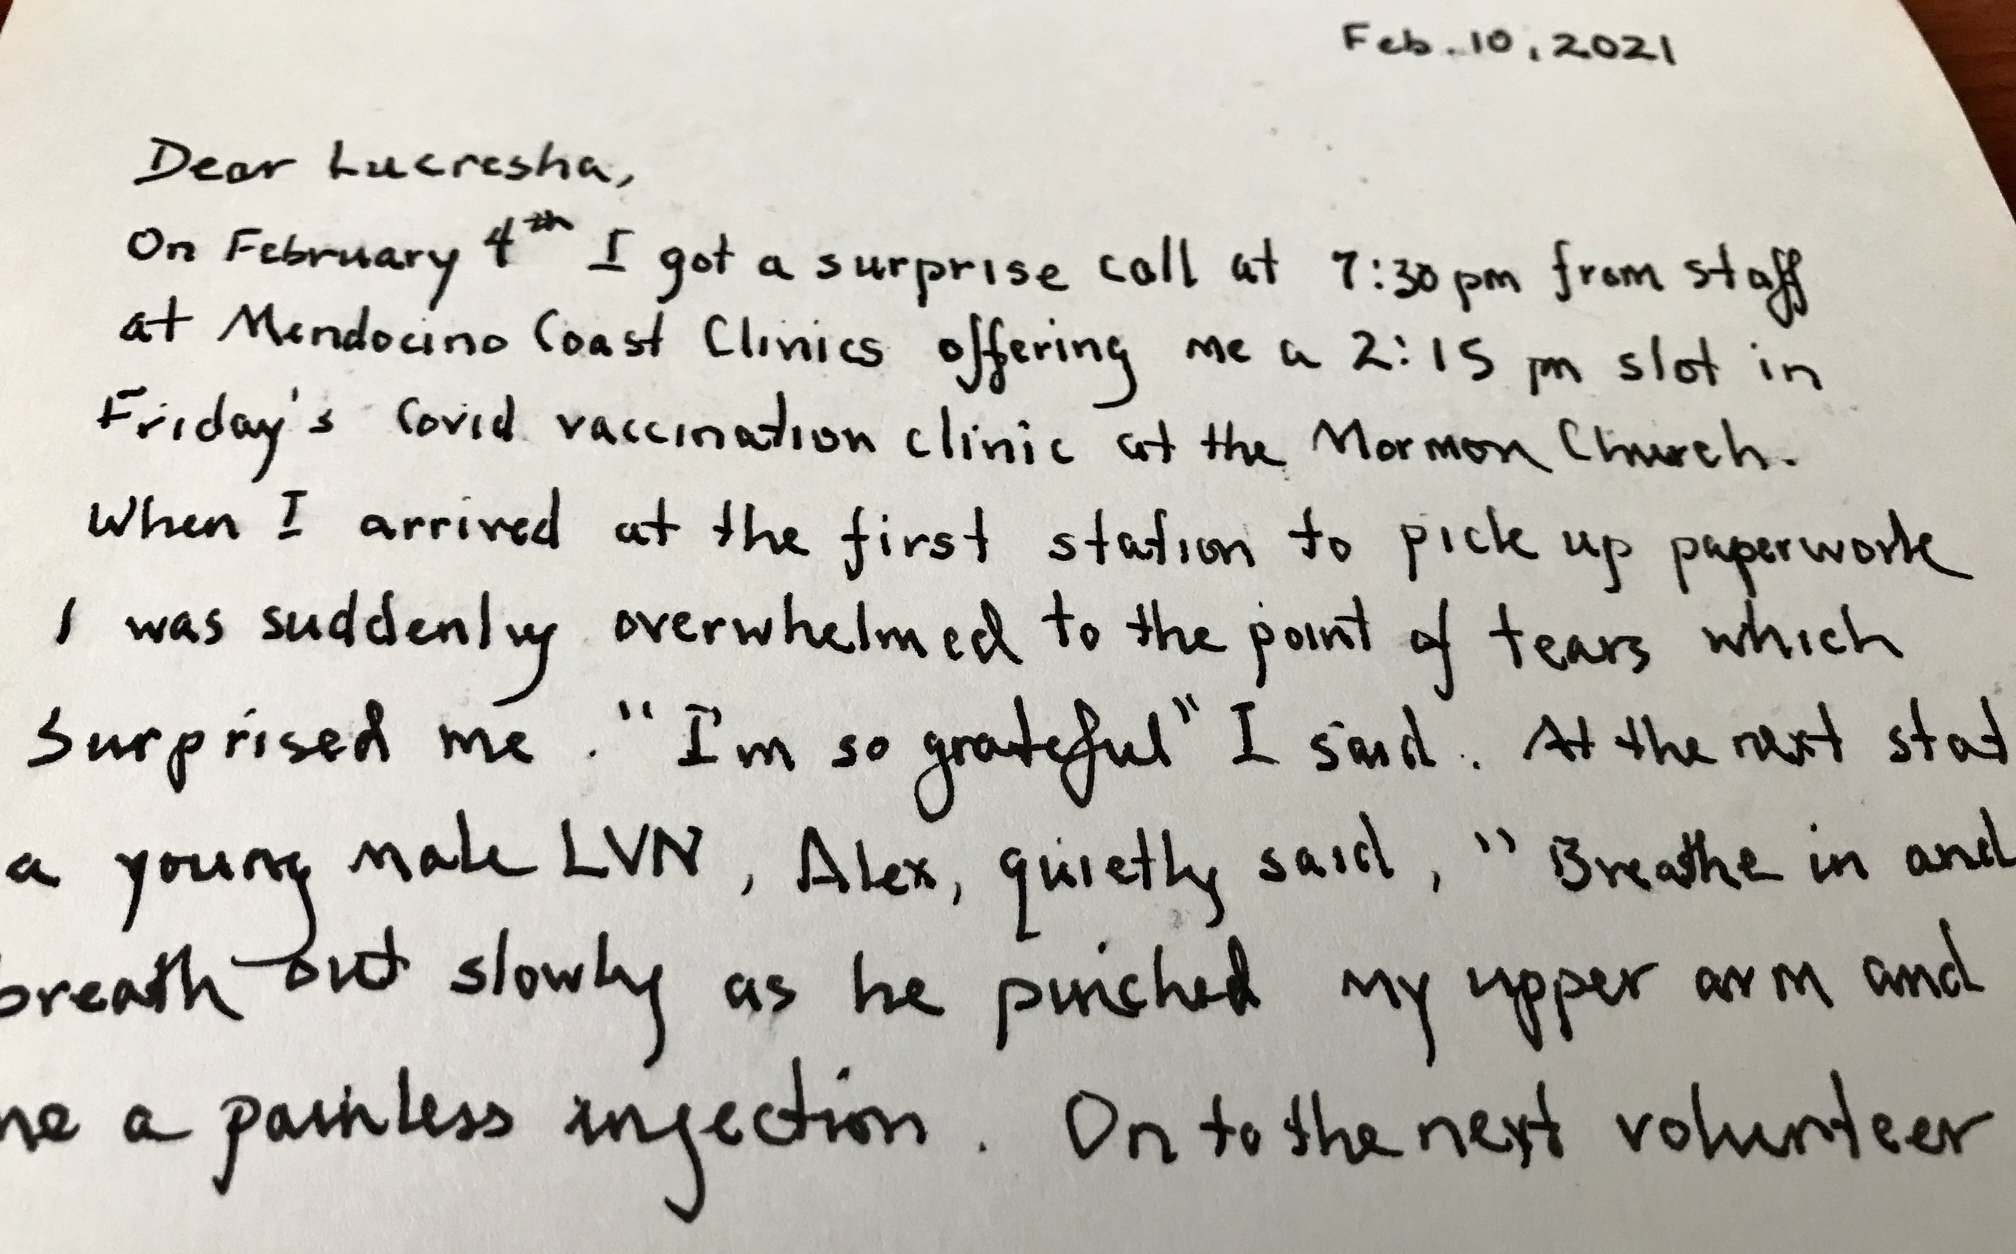 Feb. 10, 2021
Dear Lucresha,
On February 4th I got a surprise call at 7:30 pm from staff
at Mendocino Coast Clinics offering me a 2:15 pm slot in
Friday's Covid vaccination clinic at the Mormon Church.
When I arrived at the first station to pick up paperwork
I was suddenly overwhelmed to the point of tears which
surprised me. "I'm so grateful" I said. At the next stat
a young male LVN, Alex, quietly said, "Breathe in and
breath out slowly as he pinched my upper arm and
me a painless injection. On to the next volunteer